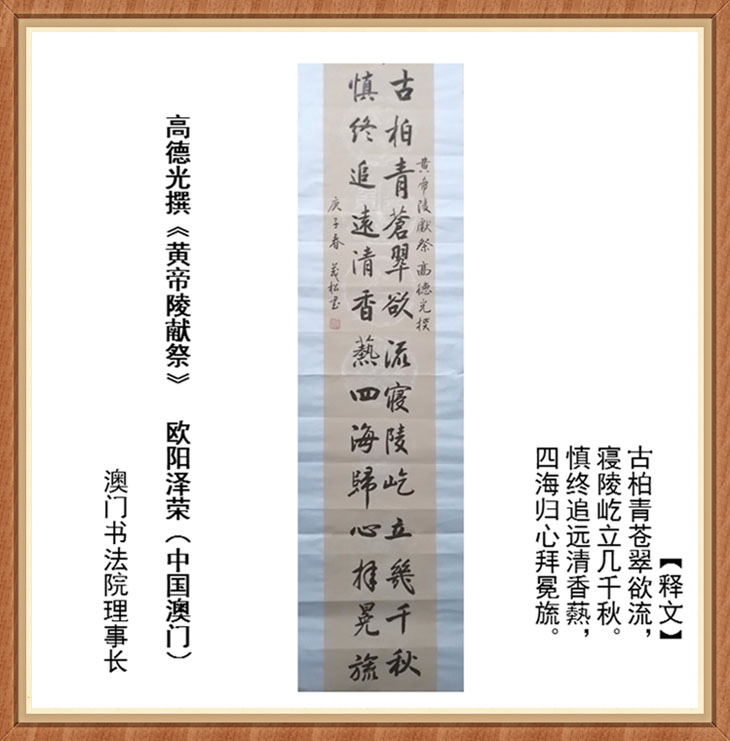 【释文】
古柏青苍翠欲流，
寝陵屹立几千秋。
慎终追远清香爇，
四海归心拜冕旒。
黄帝陵獻祭 高德光撰
古柏青蒼翠欲流寢陵屹立幾千秋
慎終追遠清香爇四海歸心拜冕旒
庚子春 義松书
高德光撰《黄帝陵献祭》 欧阳泽荣（中国澳门）
澳门书法院理事长